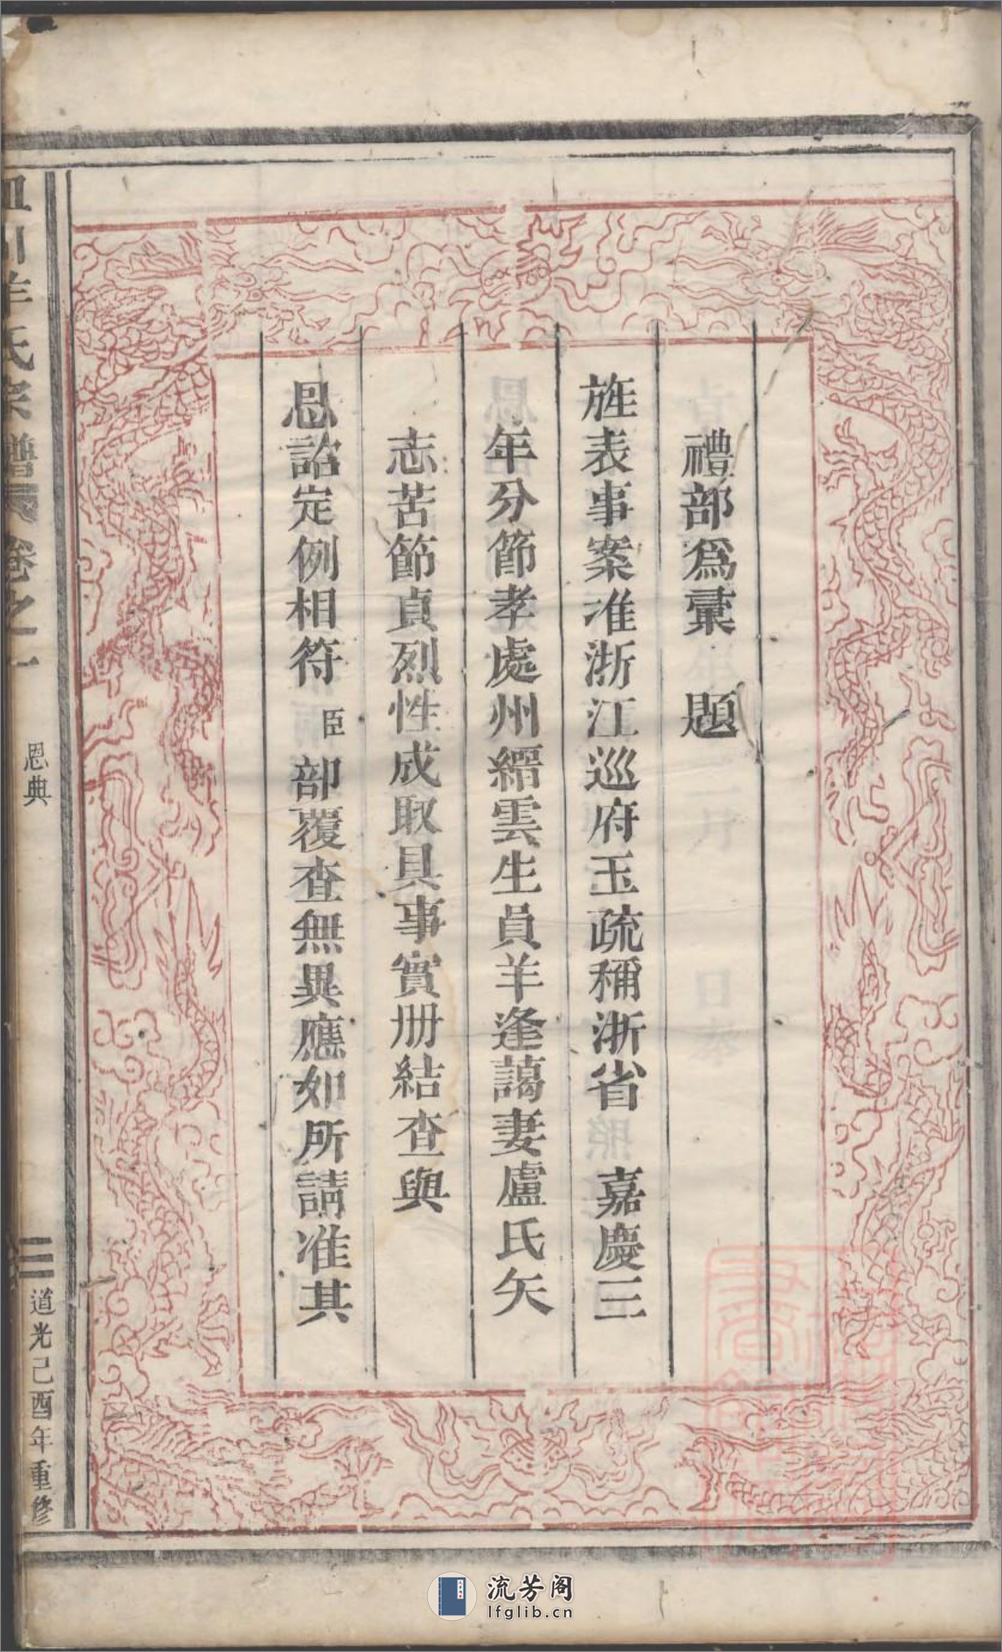 禮部爲彙 題
旌表事案准浙江巡府玉疏稱浙省 嘉慶三
年分節孝處州縉雲生員羊逢藹妻盧氏矢
志苦節貞烈性成取具事實册結查與
恩詔定例相符 臣 部覆查無異應如所請准其
川羊氏宗譜 卷之一
恩典
道光己酉年重修
流芳阁
lfglib.cn